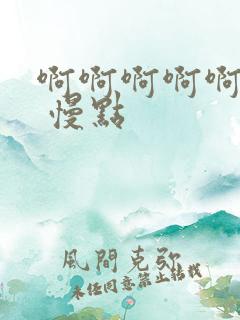 啊啊啊啊啊
慢點
風間克弥
未任同意禁止轉載